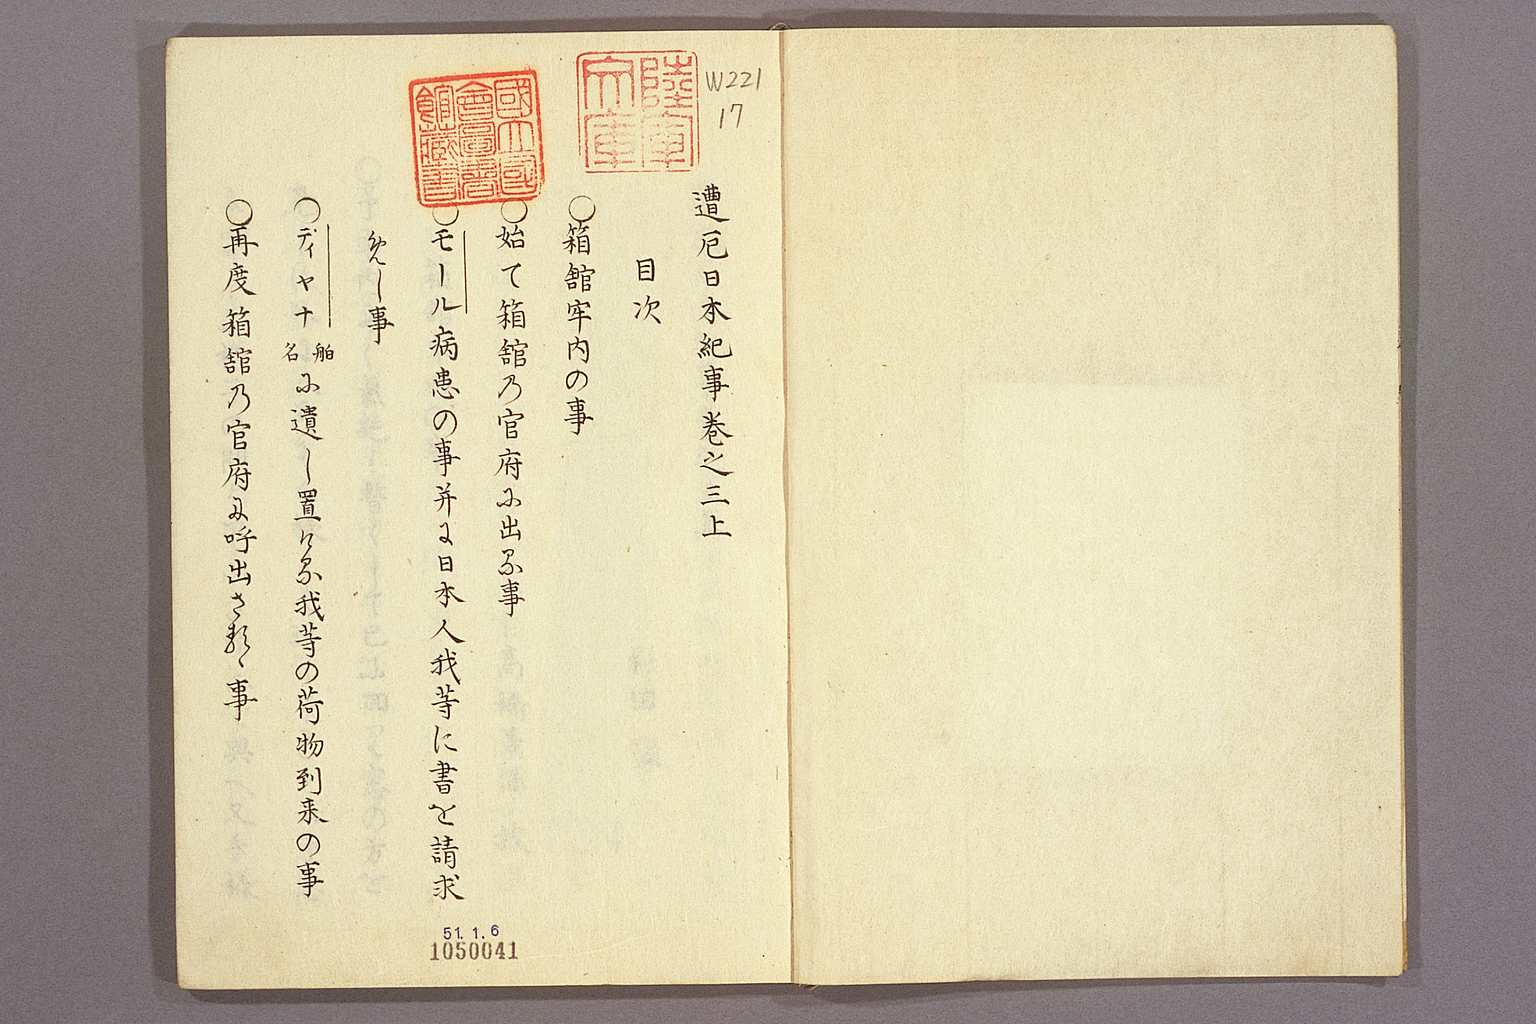 W221
17
陸軍文庫
國立國會圖書館藏書
遭厄日本紀事巻之三上
目次
○箱舘牢内の事
○始て箱舘乃官府に出る事
○モール病患の事并に日本人我等に書を請求
めし事
○ディヤナ舶名に遺し置ける我等の荷物到来の事
○再度箱舘乃官府に呼出さるゝ事
51. 1. 6
1050041